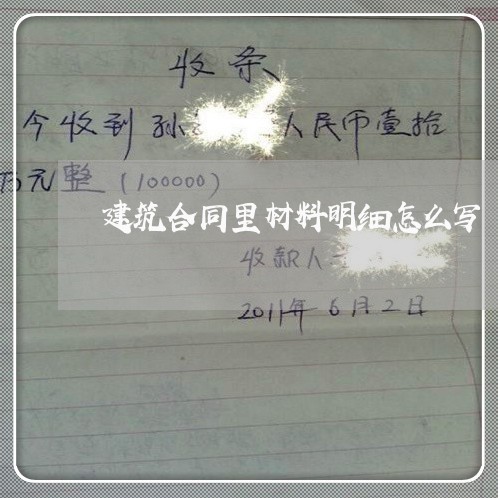 收条
今收到孙 人民币壹拾
万元整（100000）
建筑合同里材料明细怎么写
收款人
2011年6月2日